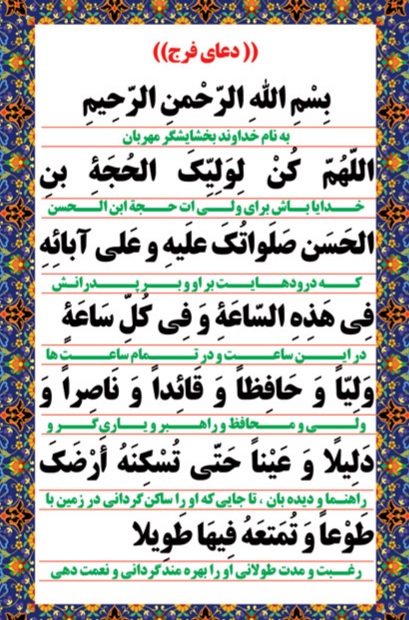 (( دعای فرج))
بِسْمِ اللهِ الرّحْمنِ الرّحِیمِ
به نام خداوند بخشایشگر مهربان
اللّهُمّ کُنْ لِوَلِیِّکَ الحُجَةِ بنِ
خدایا باش برای ولی ات حجة ابن الحسن
الحَسَن صَلَواتُکَ علَیهِ و عَلی آبائِهِ
که درودهایت بر او و بر پدرانش
فِی هَذِهِ السّاعَةِ وَ فِی کُلِّ سَاعَةٍ
در این ساعت و در تمام ساعت ها
وَلِیّاً وَ حَافِظاً وَ قَائِداً وَ نَاصِراً وَ
ولی و محافظ و راهبر و یاری گر و
دَلِیلًا وَ عَیْناً حَتّی تُسْکِنَهُ أرْضَکَ
راهنما و دیده بان ، تا جایی که او را ساکن گردانی در زمین با
طَوْعاً وَ تُمَتِعَهُ فِیهَا طَوِیلا
رغبت و مدت طولانی او را بهره مند گردانی و نعمت دهی